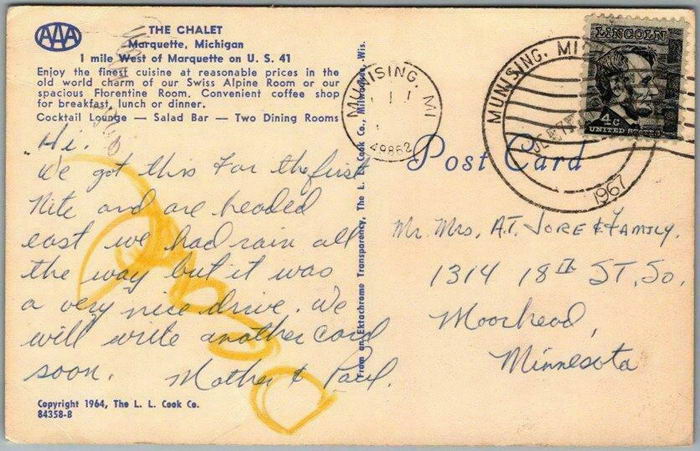 AAA
THE CHALET
Marquette, Michigan
1 mile West of Marquette on U. S. 41
Enjoy the finest cuisine at reasonable prices in the
old world charm of our Swiss Alpine Room or our
spacious Florentine Room. Convenient coffee shop
for breakfast, lunch or dinner.
Cocktail Lounge — Salad Bar — Two Dining Rooms
Hi.
We got this far the first
Nite and are headed
east we had rain all
the way but it was
a very nice drive. We
will write another card
soon. Mother & Paul.
Copyright 1964, The L. L. Cook Co.
84358-B
From an Ektachrome Transparency, The L. L. Cook Co., Milwaukee, Wis.
MUNISING, MI
49862
Post Card
MUNISING, MI
1967
LINCOLN
4c
UNITED STATES
Mr. Mrs. A.T. JORE & FAMILY.
1314 18th ST. So.
Moorhead,
Minnesota